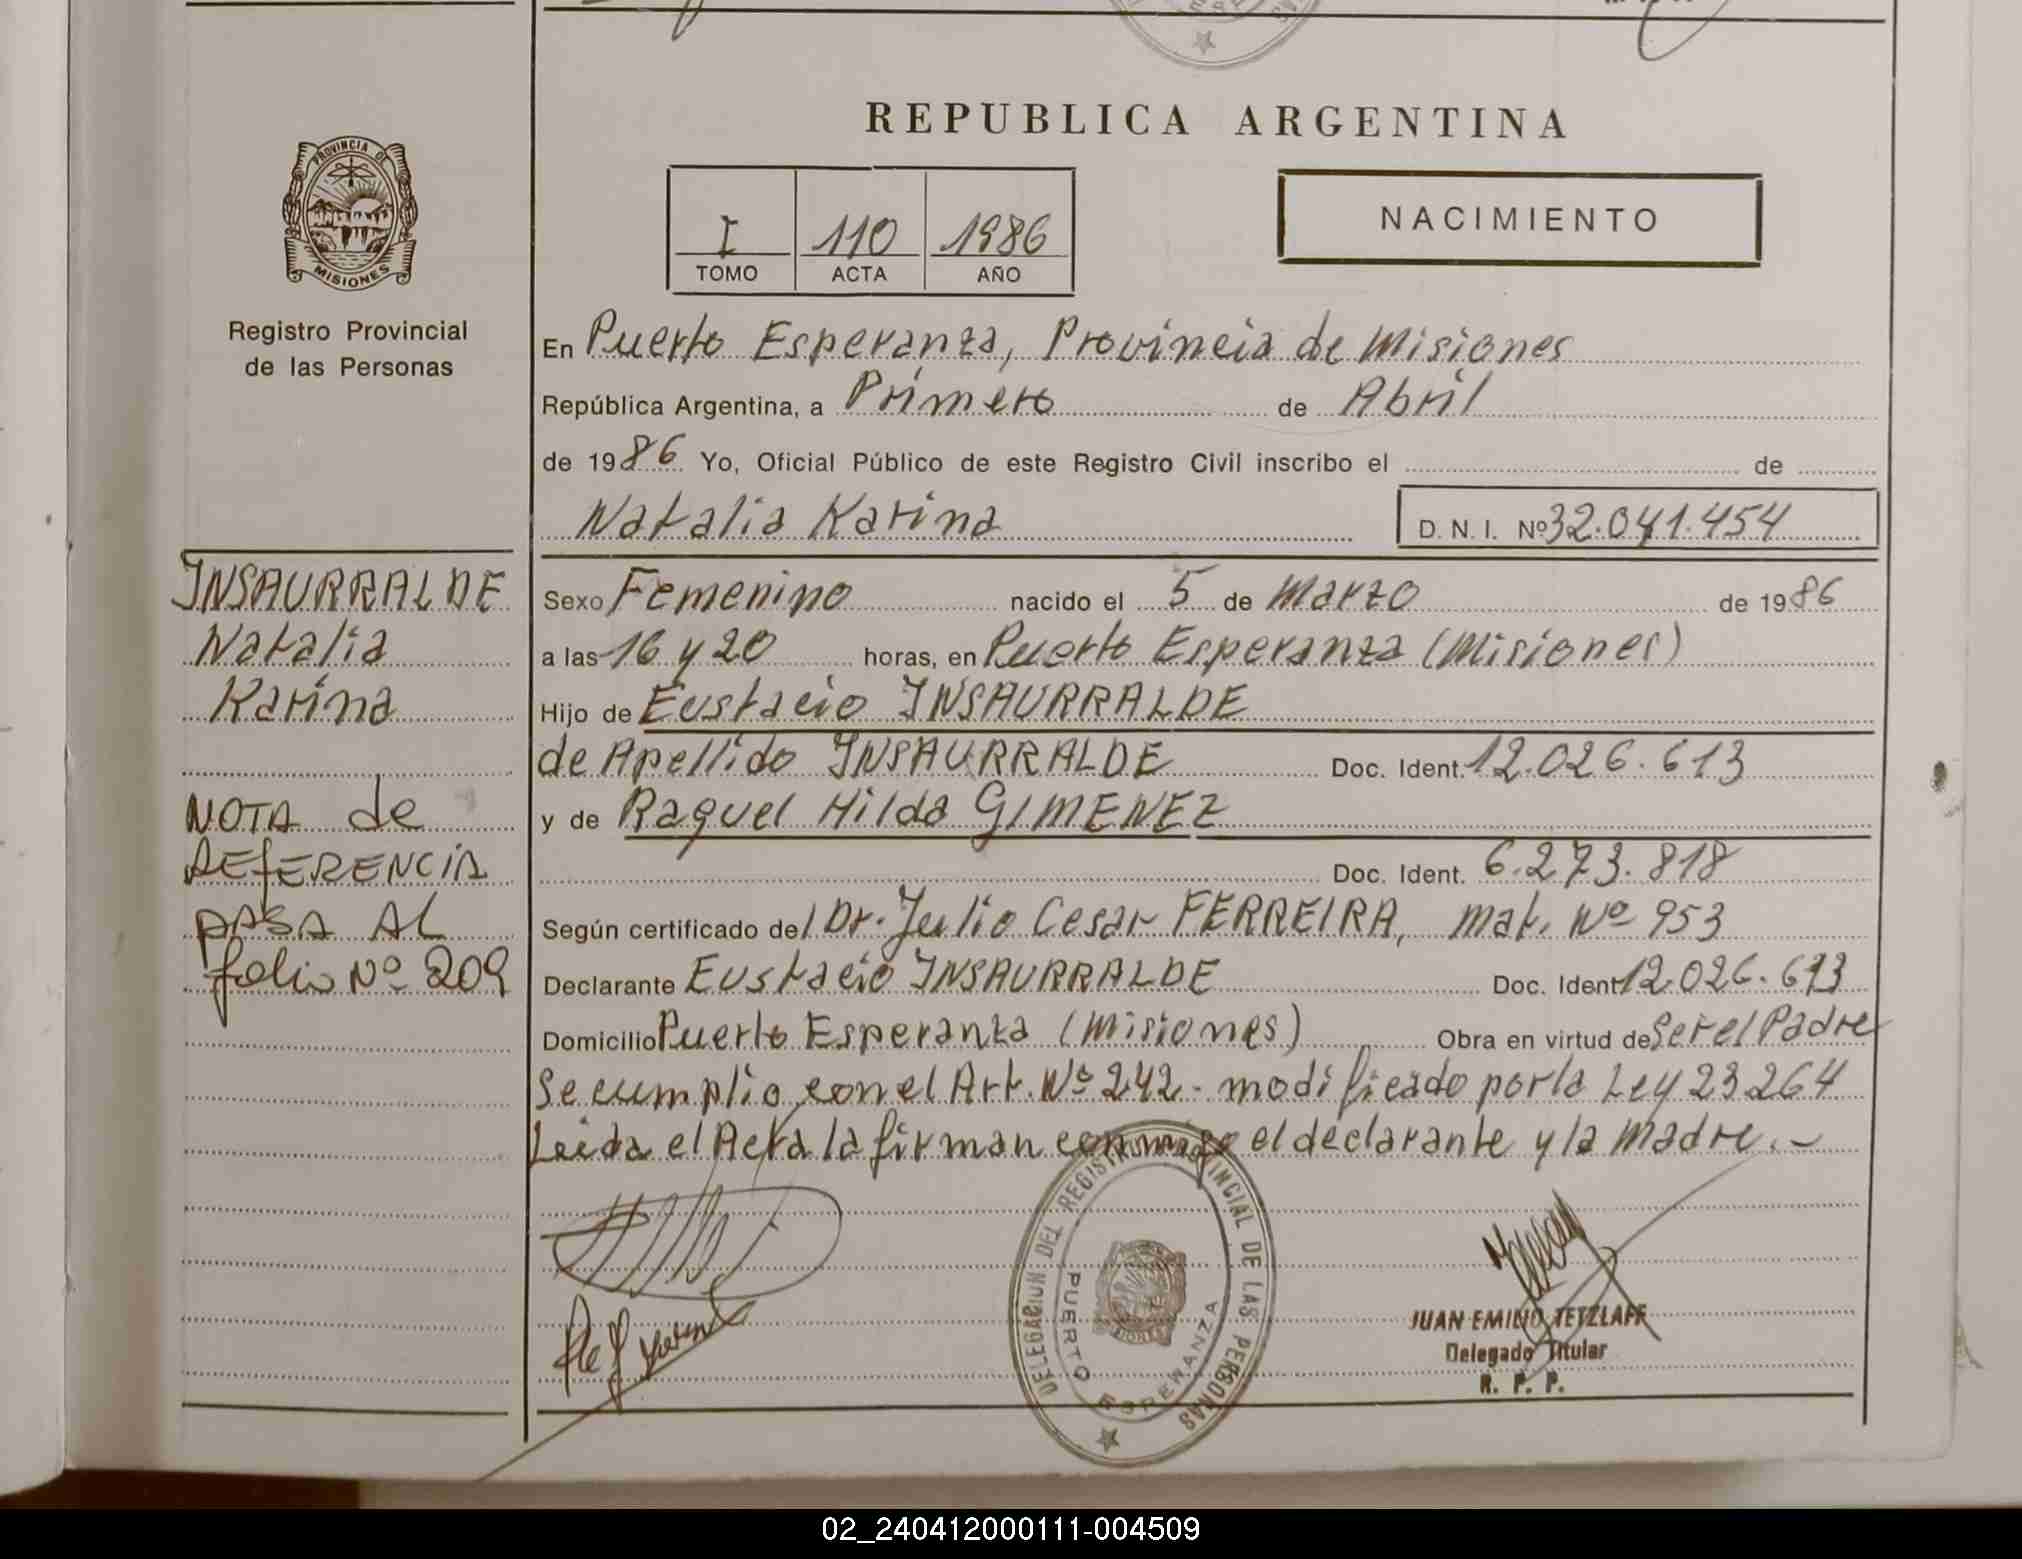 REPUBLICA ARGENTINA
PROVINCIA DE
MISIONES
Registro Provincial
de las Personas
I 110 1986
TOMO ACTA AÑO
NACIMIENTO
En Puerto Esperanza, Provincia de Misiones
República Argentina, a Primero de Abril
de 1986 Yo, Oficial Público de este Registro Civil inscribo el de
Natalia Karina D. N. I. Nº 32.041.454
INSAURRALDE
Natalia
Karina
NOTA de
REFERENCIA
PASA AL
folio Nº 209
Sexo Femenino nacido el 5 de Marzo de 1986
a las 16 y 20 horas, en Puerto Esperanza (Misiones)
Hijo de Eustacio INSAURRALDE
de Apellido INSAURRALDE Doc. Ident. 12.026.613
y de Raquel Hilda GIMENEZ
Doc. Ident. 6.273.818
Según certificado del Dr. Julio Cesar FERREIRA, mat. Nº 953
Declarante Eustacio INSAURRALDE Doc. Ident 12.026.613
Domicilio Puerto Esperanza (Misiones) Obra en virtud de Ser el Padre
Se cumplio con el Art. Nº 242 - modificado por la Ley 23264
Leida el Acta la firman conmigo el declarante y la Madre. -
DELEGACION DEL REGISTRO PROVINCIAL DE LAS PERSONAS
PUERTO ESPERANZA
JUAN EMILIO TETZLAFF
Delegado Titular
R. P. P.
02_240412000111-004509